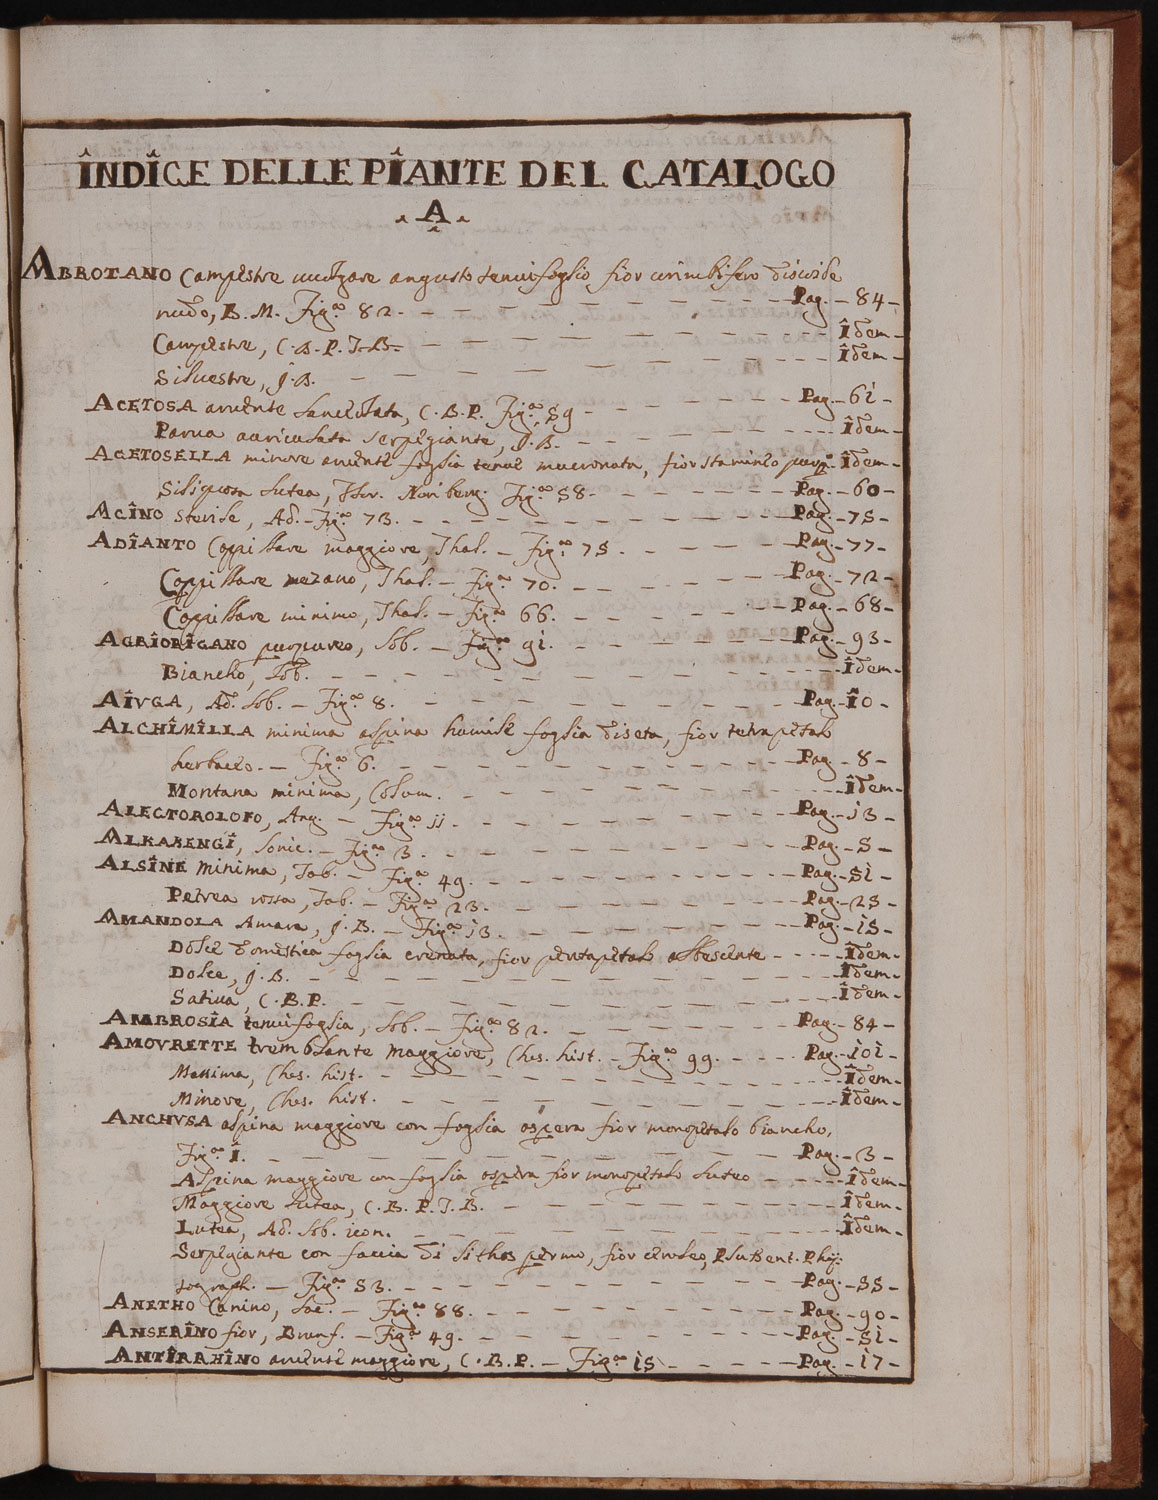 ÎNDÎCE DELLE PÎANTE DEL CATALOGO
A
ABROTANO Campestre vulgare angusto tenuifoglio fior corimbifero discoide
nudo, B. M. Figᵃ 82. Pag. 84
Campestre, C. B. P. J. B. Îdem
Silvestre, J. B. Îdem
ACETOSA arvente lanceolata, C. B. P. Figᵃ 59 Pag. 61
Parva auriculata serpegiante, J. B. Îdem
ACETOSELLA minore arvente foglia tenue mucronata, fior stamineo purp. Îdem
Siliquosa lutea, Hor. Nuriberg. Figᵃ 58. Pag. 60
ACÎNO sterile, Ad. Figᵃ 73. Pag. 75
ADÎANTO Cappillare maggiore, Thal. Figᵃ 75. Pag. 77
Cappillare mezano, Thal. Figᵃ 70. Pag. 72
Cappillare minimo, Thal. Figᵃ 66. Pag. 68
AGRÎORÎGANO purpureo, Lob. Figᵃ 91. Pag. 93
Biancho, Lob. Îdem
AÎVGA, Ad. Lob. Figᵃ 8. Pag. 10
ALCHÎMÎLLA minima alpina humile foglia diseta, fior tetrapetalo
herbaceo. Figᵃ 6. Pag. 8
Montana minima, Colum. Îdem
ALECTOROLOFO, Ang. Figᵃ 11. Pag. 13
ALKAKENGÎ, Lonic. Figᵃ 3. Pag. 5
ALSÎNE minima, Tab. Figᵃ 49. Pag. 51
Petrea rossa, Tab. Figᵃ 23. Pag. 25
AMANDOLA Amara, J. B. Figᵃ 13. Pag. 15
Dolce domestica foglia crenata, fior pentapetalo albescente Îdem
Dolce, J. B. Îdem
Sativa, C. B. P. Îdem
AMBROSÎA tenuifoglia, Lob. Figᵃ 82. Pag. 84
AMOVRETTE tremblante maggiore, Ches. hist. Figᵃ 99. Pag. 101
Massima, Ches. hist. Îdem
Minore, Ches. hist. Îdem
ANCHVSA alpina maggiore con foglia aspera fior monopetalo biancho,
Figᵃ 1. Pag. 3
Alpina maggiore con foglia aspera fior monopetalo luteo Îdem
Maggiore lutea, C. B. P. J. B. Îdem
Lutea, Ad. Lob. icon. Îdem
Serpegiante con faccia di lithospermo, fior ceruleo, Plukent. Phy
tograph. Figᵃ 53. Pag. 55
ANETHO Canino, Lac. Figᵃ 88. Pag. 90
ANSERÎNO fior, Brunf. Figᵃ 49. Pag. 51
ANTÎRRHÎNO arvente maggiore, C. B. P. Figᵃ 15 Pag. 17